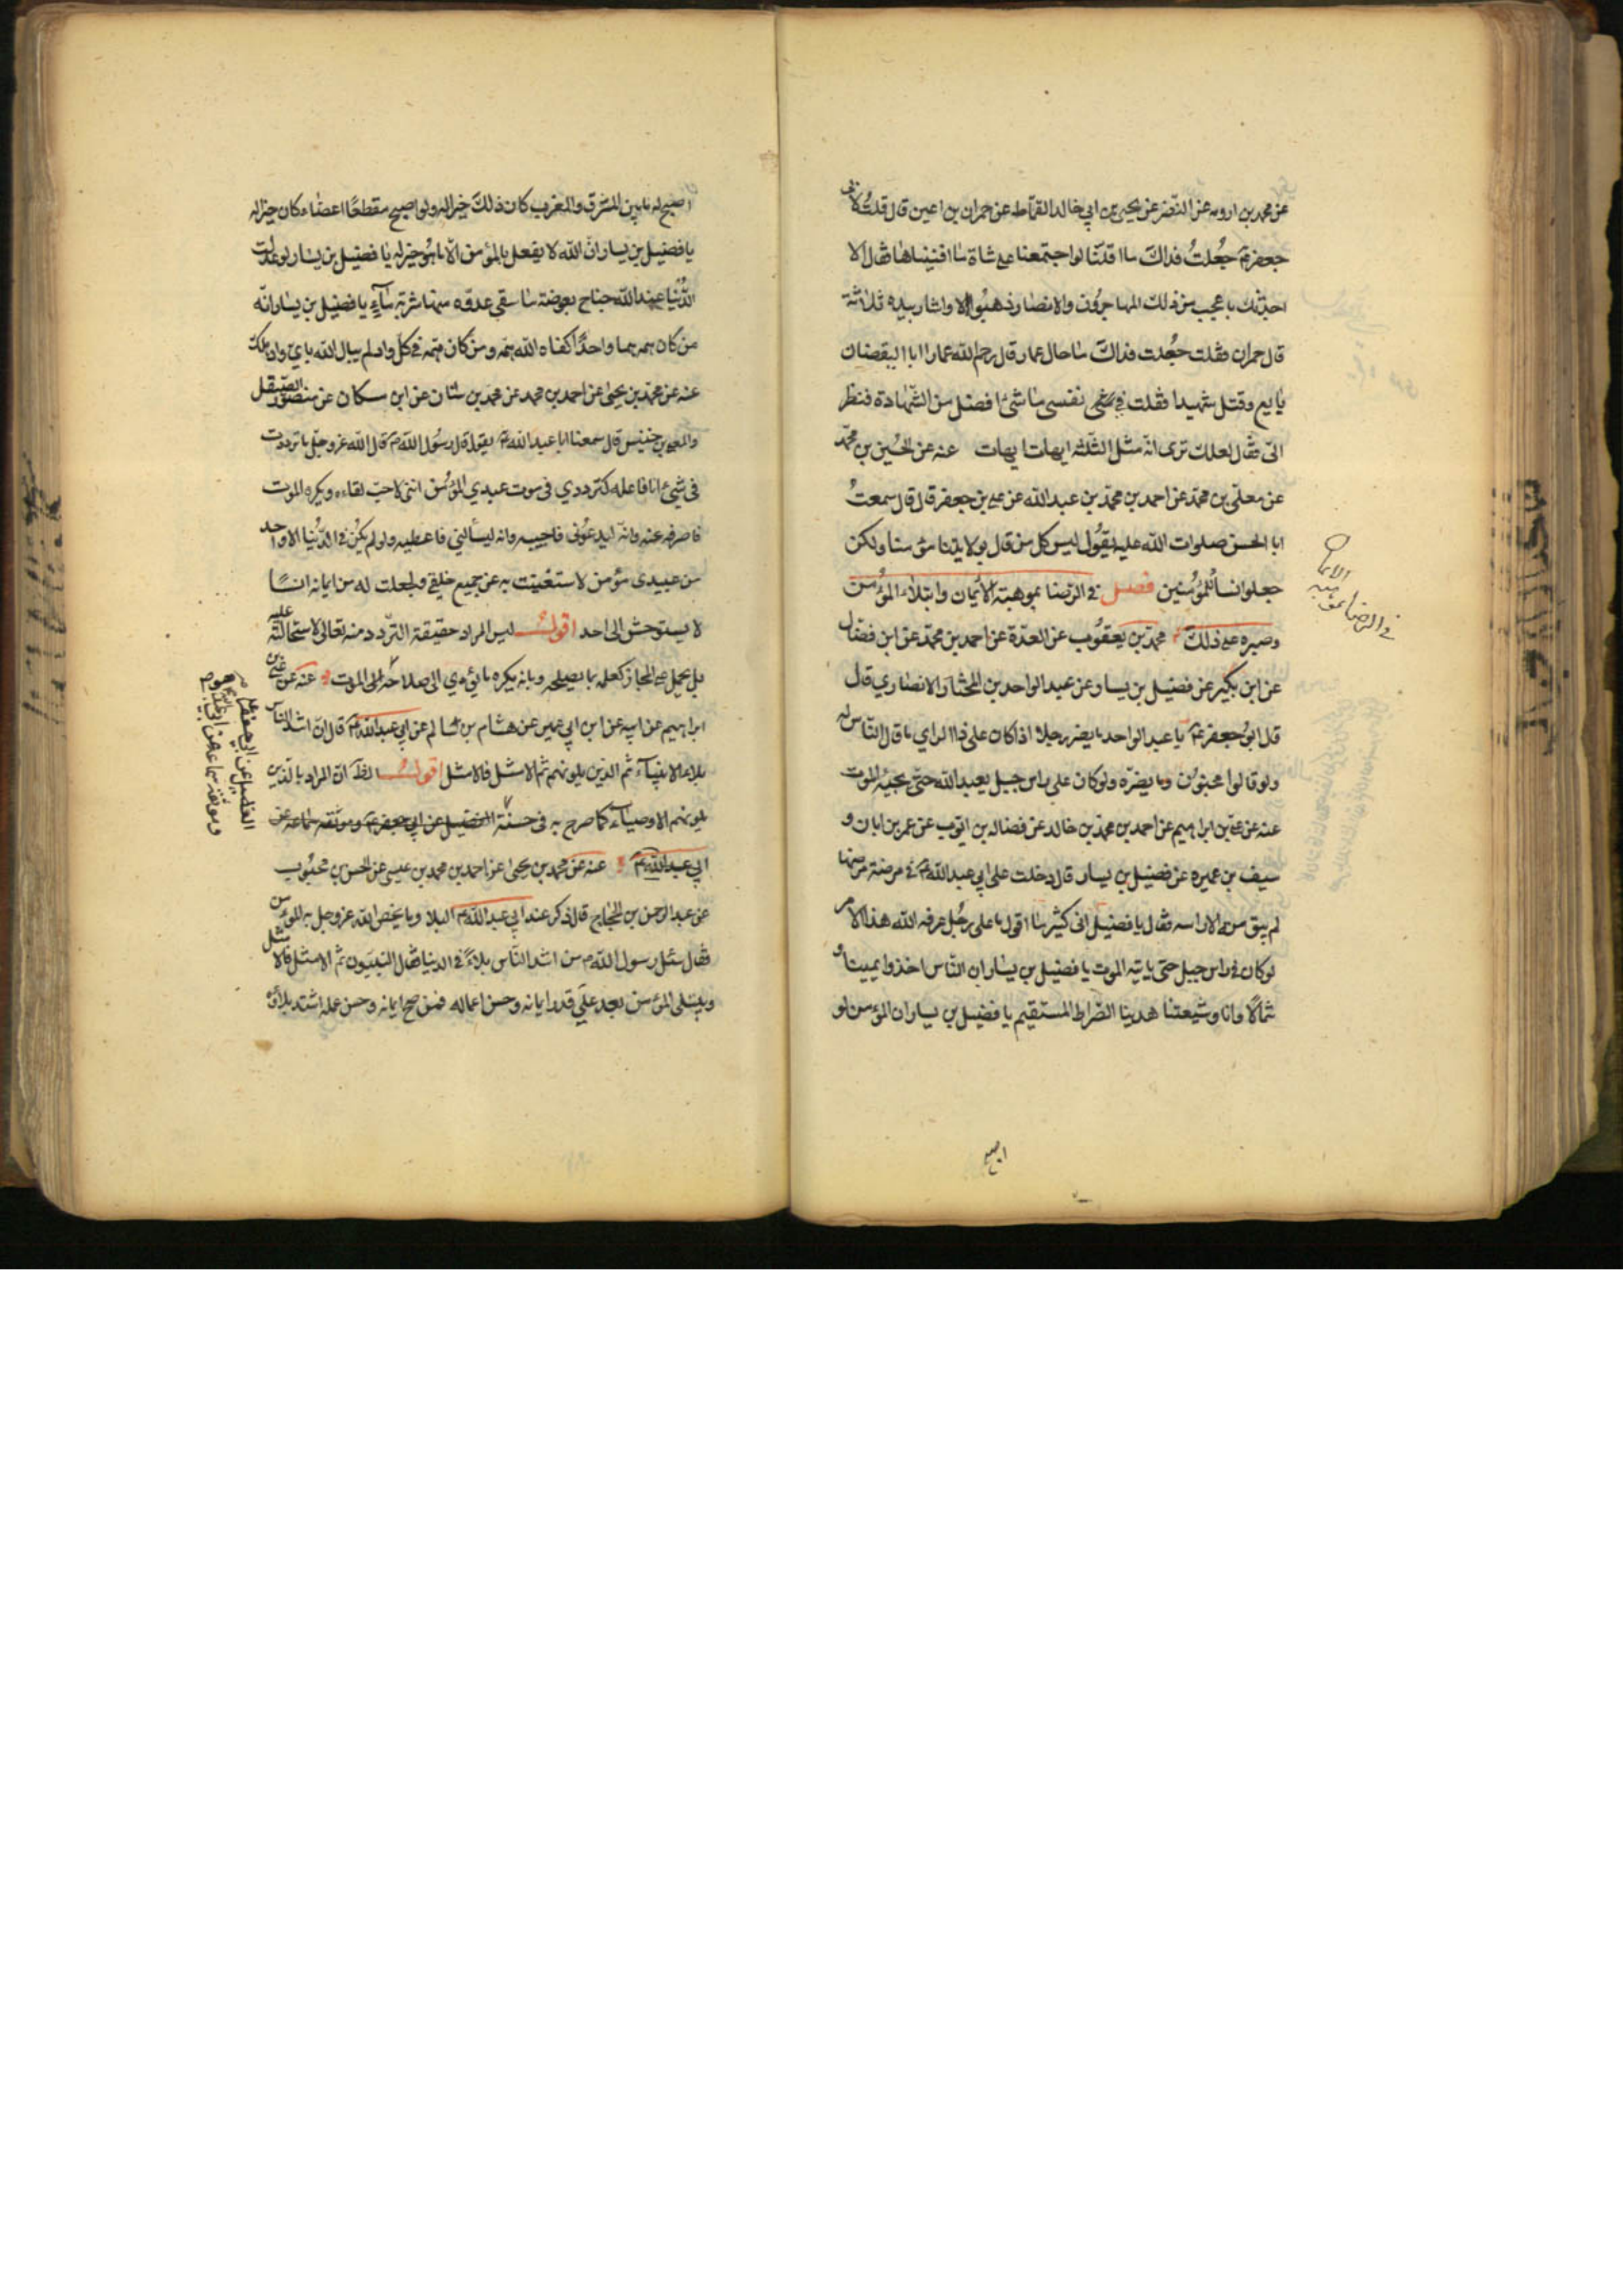 عن محمد بن اورمه عن النضر عن يحيى بن ابي خالد القماط عن حمران بن اعين قال قلت لابي
جعفر ع جُعلتُ فداك ما اقلّنا لو اجتمعنا على شاة ما افنيناها فقال الا
احدثك باعجب من ذلك المهاجرون والانصار ذهبُوا الا واشار بيده ثلاثة
قال حمران فقلت جُعلت فداك ما حال عمار قال رحم الله عمارا ابا اليقضان
بايع وقتل شهيدا فقلت في نفسي ما شئ افضل من الشهادة فنظر
الىّ فقال لعلك ترى انّه مثل الثلثه ايهات ايهات عنه عن الحُسين بن محمّد
عن معلّى بن محمّد عن احمد بن محمّد بن عبد الله عن علي بن جعفر قال قال سمعتُ
ابا الحسن صلوات الله عليه يقُول ليس كل من قال بولايتنا مؤمنا ولكن
جعلوا انسا للمُؤمنين فصل في الرّضا بموهبته الأيمان وابتلاء المؤمن
وصبره على ذلك محمّد بن يعقوب عن العدّة عن احمد بن محمّد عن ابن فضال
عن ابن بكير عن فضيل بن يسار عن عبد الواحد بن المختار الانصاري قال
قال ابو جعفر ع يا عبد الواحد ما يضر رجلا اذا كان على ذا الراي ما قال النّاس له
ولو قالوا مجنون وما يضرّه ولو كان على راس جبل يعبد الله حتّى يجيئه الموت
عنه عن علي بن ابراهيم عن احمد بن محمّد بن خالد عن فضاله بن ايّوب عن عمر بن ابان و
سيف بن عميره عن فضيل بن يسار قال دخلت على ابي عبد الله ع في مرضة مرضها
لم يبق منه الا راسه فقال يا فضيل انى كثيرا ما اقول ما على رجُل عرفه الله هذا الامر
لو كان في راس جبل حتى ياتيه الموت يا فضيل بن يسار ان النّاس اخذوا يمينا و
شمالا وانا وشيعتنا هدينا الصّراط المستقيم يا فضيل بن يسار ان المؤمن لو
اصبح
في الرضا بموهبته
الايما
اصبح له ما بين المشرق والمغرب كان ذلك خيرا له ولو اصبح مقطعًا اعضاءه كان خيرا له
يا فضيل بن يسار انّ الله لا يفعل بالمؤمن الّا ما هُو خير له يا فضيل بن يسار لو عدلت
الدُّنيا عند الله جناح بعوضة ما سقى عدوّه منها شربة ماء يا فضيل بن يسار انّه
من كان همه هما واحدًا كفاه الله همّه ومن كان همّه في كلّ واد لم يبال الله باىّ واد هلك
عنه عن محمّد بن يحيى عن احمد بن محمد عن محمّد بن سنان عن ابن مسكان عن منصور الصّيقل
والمعلى بن خنيس قال سمعنا ابا عبد الله ع يقول قال رسُول الله ص قال الله عز وجل ما ترددت
في شئ انا فاعله كترددي في موت عبدي المُؤمن اننى لاحبّ لقاءه ويكره الموت
فاصرفه عنه وانّه ليدعُونى فاجيبه وانه ليسألني فاعطيه ولو لم يكن في الدّنيا الا واحد
من عبيدى مؤمن لاستغنيت به عن جميع خلقي ولجعلت له من ايمانه انسًا
لا يستوحش الى احد اقول ليس المراد حقيقة التردد منه تعالى لاستحالته عليه
بل يحمل على المجاز كعلمه بما يصلحه وبانه يكره ما يؤدي الى صلاحه الى الموت عنه عن علي بن
ابراهيم عن ابيه عن ابن ابي عمير عن هشام بن سالم عن ابي عبد الله ع قال ان اشد الناس
بلاء الانبياء ثم الذين يلونهم ثم الامثل فالامثل اقول الظ انّ المراد بالّذين
يلونهم الاوصياء كما صرح به في حسنة الفضيل عن ابي جعفر ع وموثقه سماعه عن
ابي عبد الله ع عنه عن محمد بن يحيى عن احمد بن محمد بن عيسى عن الحسن بن محبُوب
عن عبد الرحمن بن الحجاج قال ذكر عند ابي عبد الله ع البلاء وما يخص الله عز وجل به المؤمن
فقال سئل رسول الله ص من اشد النّاس بلاءً في الدنيا فقال النبيون ثم الامثل فالامثل
ويبتلى المؤمن بعد على قدر ايمانه وحسن اعماله فمن صح ايمانه وحسن عمله اشتد بلاؤه
الفضيل عن ابي جعفر ع
وموثقه سماعه عن